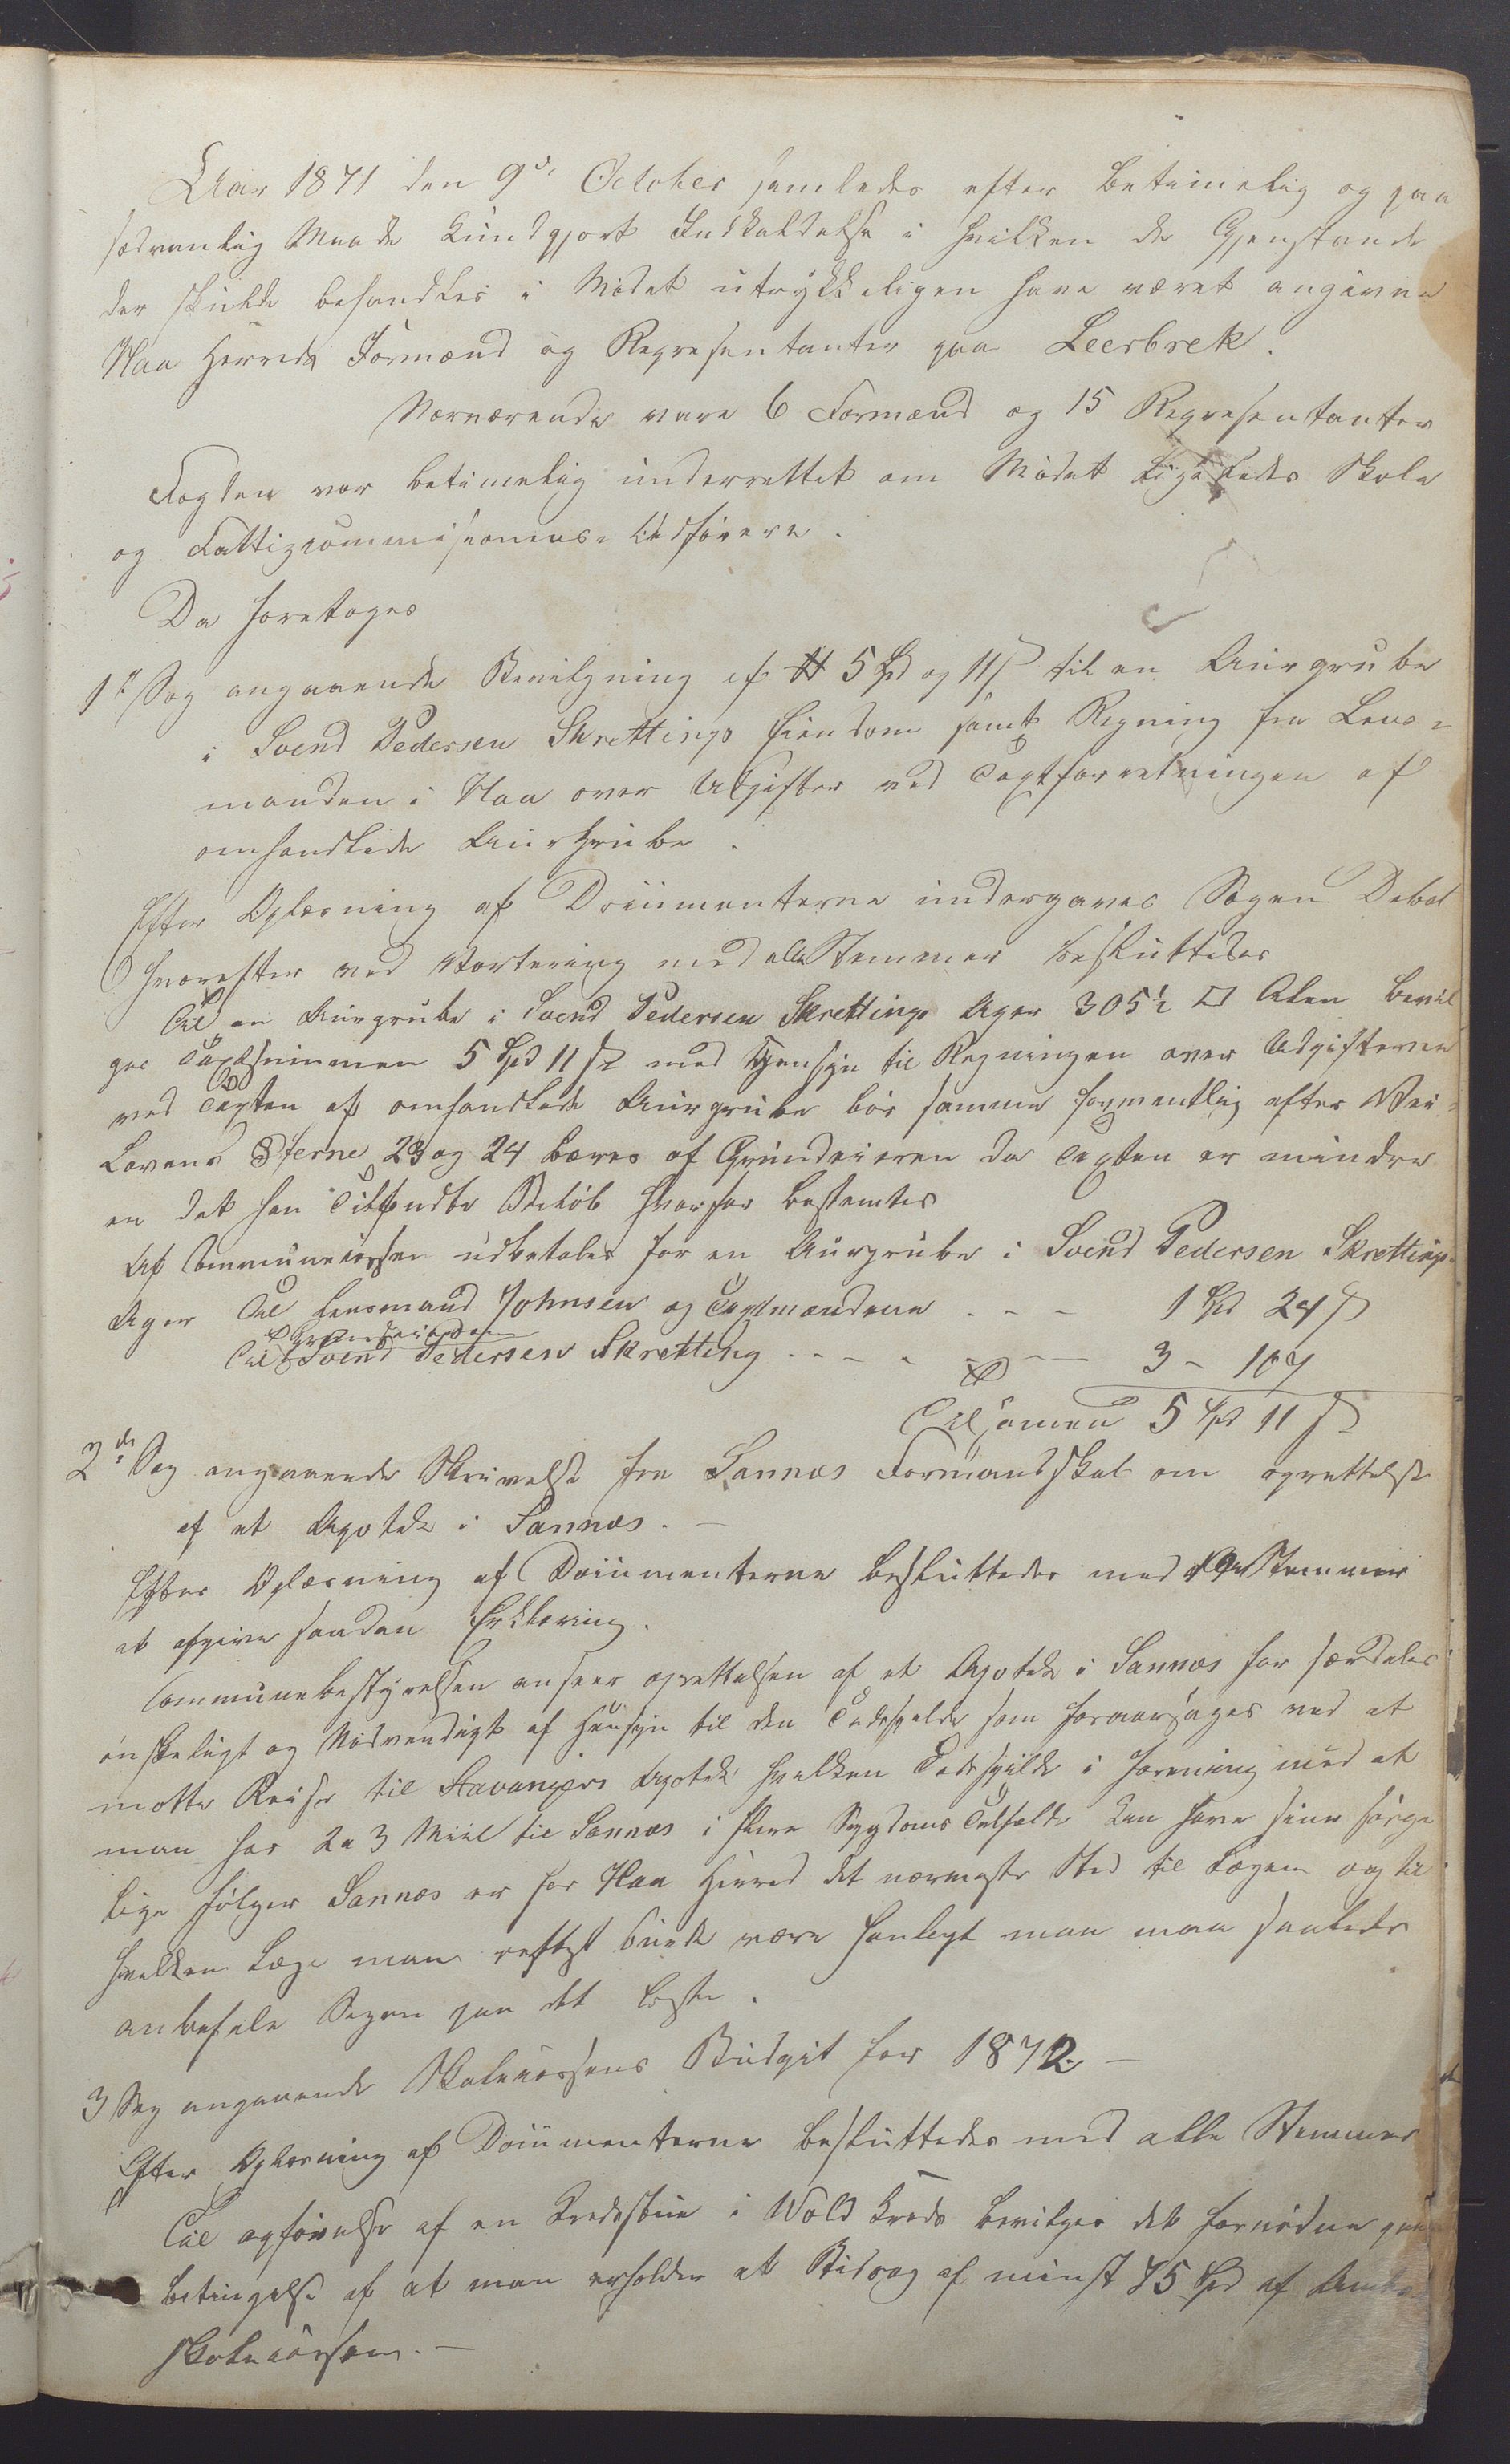 Aar 1871 den 9de October samledes efter betimelig og paa
sedvanlig Maade kundgjort Indkaldelse i hvilken de Gjenstande
der skulde behandles i Mødet utrykkeligen have været angivne
Haa Herreds Formænd og Representanter paa Leerbrek.
Nærværende vare 6 Formænd og 15 Representanter
Fogden var betimelig underrettet om Mødet ligeledes Skole
og Fattigcommisionens Ordførere.
Da foretoges
1ste Sag angaaende Bevilgning af 5 Spd og 11 s til en Aurgrube
i Svend Pedersen Skrettings Eiendom samt Regning fra Lens=
manden i Haa over Udgifter ved Taxtforretningen af
omhandlede Aurgrube.
Efter Oplæsning af Documenterne undergaves Sagen Debat
hvorefter ved Vortering med alle Stemmer besluttedes
Til en Aurgrube i Svend Pedersen Skrettings Ager 305½ □ Alen bevil
ges Taxtsummen 5 Spd 11 s med Hensyn til Regningen over Udgifterne
ved Taxten af omhandlede Aurgrube bør samme formentlig efter Vei=
Lovens §ferne 23 og 24 bæres af Grundeieren da Taxten er mindre
en det han tilbudte Beløb hvorfor bestemtes
Af Communecassen udbetales for en Aurgrube i Svend Pedersen Skrettings
Ager Til Lensmand Johnsen og Taxtmændene - - - 1 Spd 24 s
Grundeieren
Til Svend Pedersen Skretting - - - - - - - 3 - 107
Tilsamen 5 Spd 11 s
2den Sag angaaende Skrivelse fra Sannæs Formandskab om oprettelse
af et Apotek i Sannæs. -
Efter Oplæsning af Documenterne besluttedes med alle Stemmer
at afgive saadan Erklæring.
Communebestyrelsen anseer oprettelsen af et Apotek i Sannæs for særdeles
ønskeligt og Nødvendigt af Hensyn til den Tidsspilde som foraarsages ved at
motte Reise til Stavangers Apotek hvilken Tidsspilde i forening med at
man har 2 a 3 Miil til Sannæs i flere Sygdoms Tilfælde kan have sine sørge
lige følger Sannæs er for Haa Herred det nærmeste Sted til Lægen og til
hvilken Læge man oftest burde være henlagt man maa saaledes
anbefale Sagen paa det beste.
3 Sag angaaende Skolecassens Budget for 1872 -
Efter Oplæsning af Documenterne besluttedes med alle Stemmer
Til opførelse af en Kredsstue i Wold Kreds bevilges det fornødne paa
betingelse af at man erholder et Bidrag af minst 75 Spd af Amts
skolecassen. -